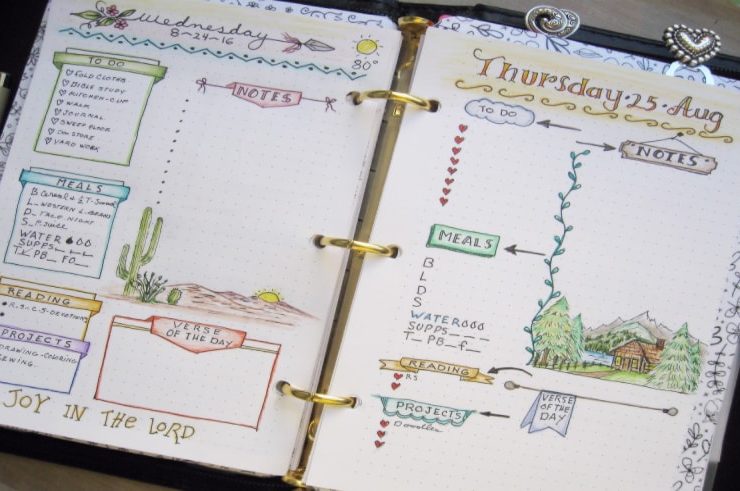 Wednesday
8-24-16
80°
TO DO
FOLD CLOTHES
BIBLE STUDY
KITCHEN-CUP
WALK
JOURNAL
SWEEP FLOOR
STORE
YARD WORK
NOTES
MEALS
B
L_ WESTERN
D_ TACO NIGHT
S_ P. JUICE
WATER
SUPPS
T_ PB_ FO_
READING
R.S.-C.S-DEVOTIONS
PROJECTS
DRAWING-COLORING
SEWING
VERSE
OF THE DAY
JOY IN THE LORD
Thursday·25·Aug
TO DO
NOTES
MEALS
B
L
D
S
WATER
SUPPS
T_ PB_ f_
READING
RS
PROJECTS
Doodles
VERSE
OF THE
DAY